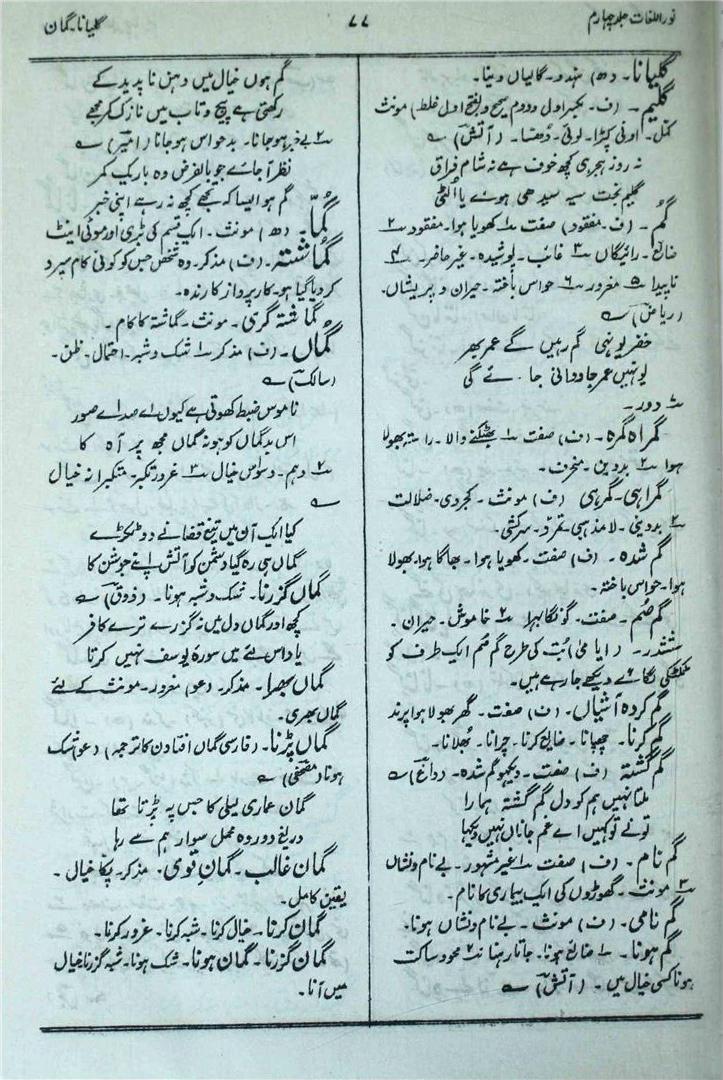 نور اللغات جلد چہارم
۷۷
گلیانا۔ گمان
گلیانا۔ (ھ) ہندو۔ گالیاں دینا۔
گلیم۔ (ف۔ بکسر اول و دوم صحیح و بفتح اول غلط) مونث
کمل۔ اونی کپڑا۔ لوئی۔ دُھسّا۔ (آتش) ؎
نہ روز ہجر ہی کچھ خوف ہے نہ شام فراق
گلیم بخت سیہ سیدھی ہوئے یا اُلٹی
گُم۔ (ف۔ مفقود) صفت ۱ کھویا ہوا۔ مفقود ۲
ضائع۔ رائیگاں ۳ غائب۔ پوشیدہ۔ غیر حاضر۔ ۴
ناپیدا ۵ مغرور ۶ حواس باختہ۔ حیران و پریشاں۔
(ریاض) ؎
خضر یونہی گم رہیں گے عمر بھر
یونہیں عمر جاودانی جائے گی
دور۔
گمراہ گمرہ۔ (ف) صفت ۱ بھٹکنے والا۔ راستہ بھولا
ہوا ۲ بردین۔ منحرف۔
گمراہی۔ گمرہی (ف) مونث۔ کجروی۔ ضلالت
۲ بردینی۔ لامذہبی۔ تمرّد۔ سرکشی۔
گم شدہ۔ (ف) صفت۔ کھویا ہوا۔ بھاگا ہوا۔ بھولا
ہوا۔ حواس باختہ۔
گم صُم۔ صفت۔ گونگا بہرا ۲ خاموش۔ حیران۔
ششدر۔ (ایامیٰ) بُت کی طرح گم صُم ایک طرف کو
ٹکٹکی لگائے دیکھے جا رہے ہیں۔
گم کردہ آشیاں۔ (ف) صفت۔ گھر بھولا ہوا پرند
گم کرنا۔ چھپانا۔ ضائع کرنا۔ چرانا۔ بُھلانا۔
گم گشتہ (ف) صفت۔ دیکھو گم شدہ۔ (داغ) ؎
ملتا نہیں ہم کو دل گم گشتہ ہمارا
تو نے تو کہیں اے غم جاناں نہیں دیکھا
گم نام۔ (ف) صفت ۱ غیر مشہور۔ بے نام و نشاں
۲ مونث۔ گھوڑوں کی ایک بیماری کا نام۔
گم نامی۔ (ف) مونث۔ بے نام و نشاں ہونا۔
گم ہونا۔ ۱ ضائع ہونا۔ جاتا رہنا ۲ محو و ساکت
ہونا کسی خیال میں۔ (آتش) ؎
گم ہوں خیال میں دہن ناپدید کے
رکھتی ہے پیچ و تاب میں نازک کمر مجھے
۳ بے خبر ہو جانا۔ بدحواس ہو جانا (امیر) ؎
نظر آجائے جو بالفرض وہ باریک کمر
گم ہو ایسا کہ تجھے کچھ نہ رہے اپنی خبر
گُمّا۔ (ھ) مونث۔ ایک قسم کی بڑی اور موٹی اینٹ
گُماشتہ۔ (ف) مذکر۔ وہ شخص جس کو کوئی کام سپرد
کر دیا گیا ہو۔ کارپرداز کارندہ۔
گماشتہ گری۔ مونث۔ گماشتہ کا کام۔
گُماں۔ (ف) مذکر ۱ شک و شبہ۔ احتمال۔ ظن۔
(سالک) ؎
ناموس ضبط کھوتی ہے کیوں اے صدائے صور
اس بدگماں کو ہو نہ گماں مجھ پر آہ کا
۲ وہم۔ وسواس خیال ۳ غرور تکبر۔ متکبرانہ خیال
؎
کیا ایک آن میں تیغ قضا نے دو ٹکڑے
گماں سی رہ گیا دشمن کو آتش اپنے جوشن کا
گماں گزرنا۔ شک و شبہ ہونا۔ (ذوق) ؎
کچھ اور گماں دل میں نہ گزرے ترے کافر
یاد اس لئے میں سورۂ یوسف نہیں کرتا
گماں بھرا۔ مذکر۔ (عو) مغرور۔ مونث کے لئے
گماں بھری۔
گماں پڑنا۔ (فارسی گماں افتادن کا ترجمہ) (عو) شک
ہونا (مصحفی) ؎
گمان عماری لیلی کا جس پہ پڑتا تھا
دریغ دور وہ محمل سوار ہم سے رہا
گمان غالب۔ گمانِ قوی۔ مذکر۔ پکّا خیال۔
یقین کامل۔
گمان کرنا۔ خیال کرنا۔ شبہ کرنا۔ غرور کرنا۔
گمان گزرنا۔ گمان ہونا۔ شک ہونا۔ شبہ گزرنا خیال
میں آنا۔